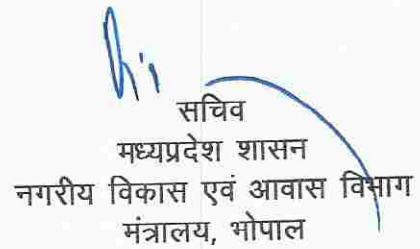 सचिव
मध्यप्रदेश शासन
नगरीय विकास एवं आवास विभाग
मंत्रालय, भोपाल